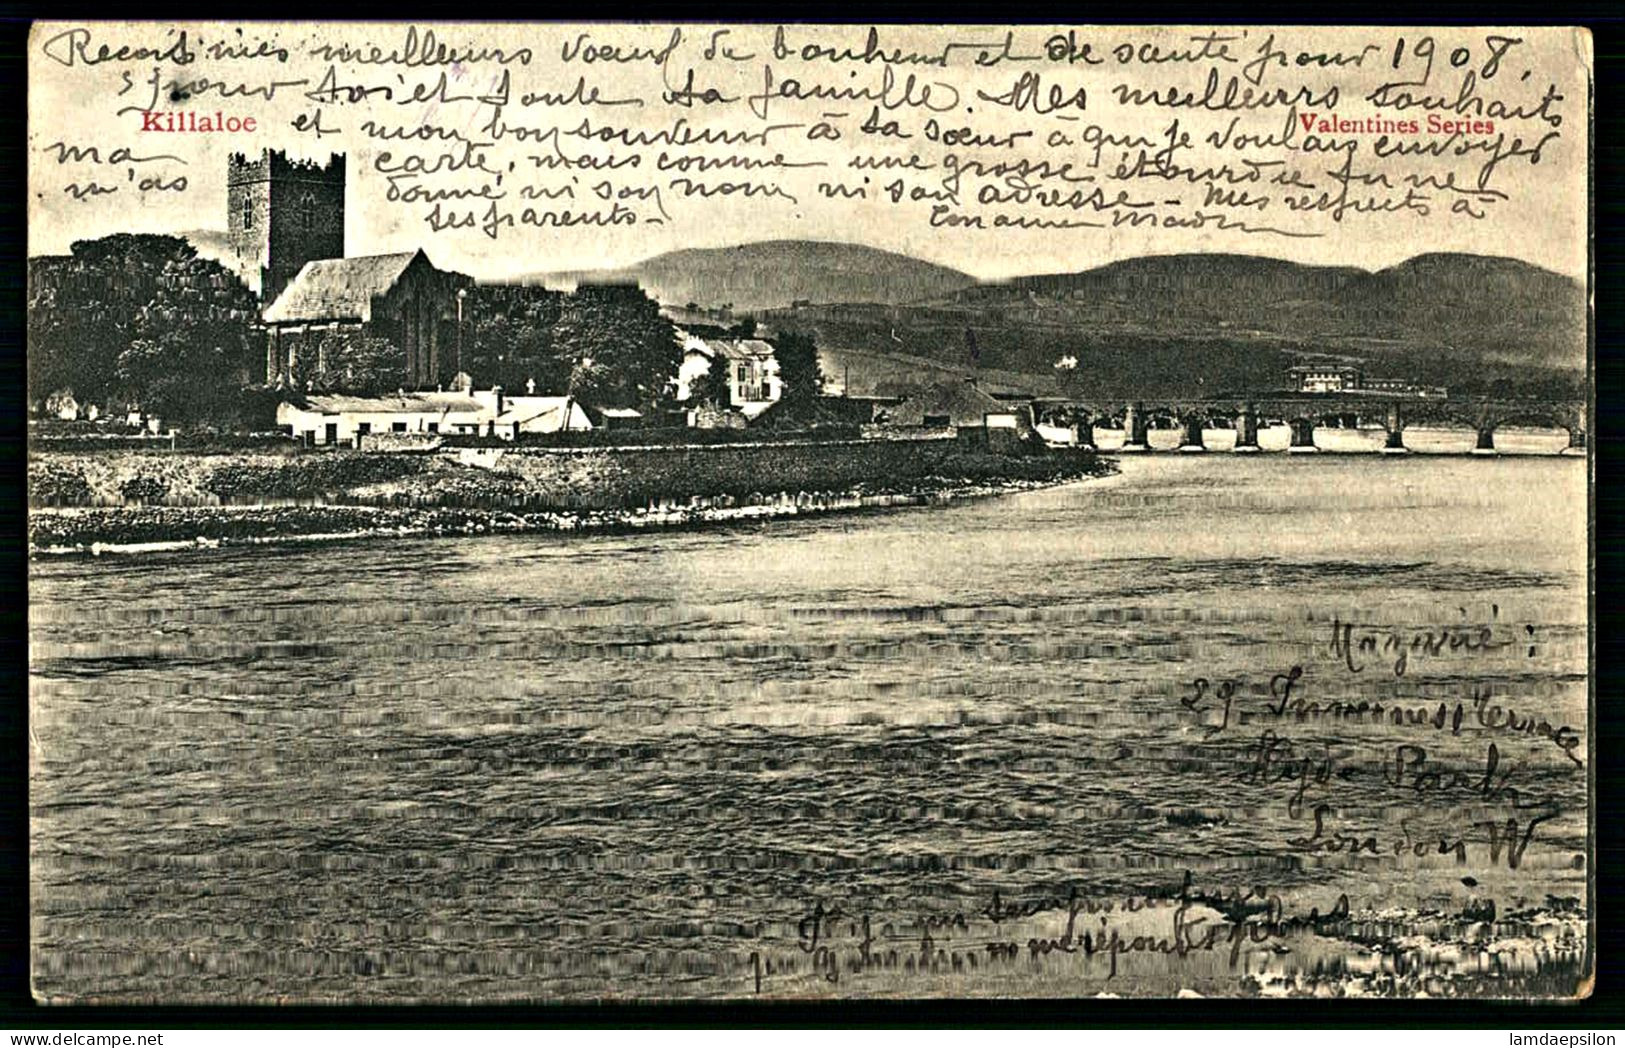 Recois mes meilleurs voeux de bonheur et de santé pour 1908,
pour toi et toute ta famille. Mes meilleurs souhaits
Killaloe
et mon bon souvenir à ta soeur à qui je voulais envoyer
Valentines Series
ma carte, mais comme une grosse étourdie tu ne
m'as donné ni son nom ni son adresse - Mes respects à
tes parents -
29 Inverness Terrace
Hyde Park
London W
tu ne me réponds plus
lamdaepsilon